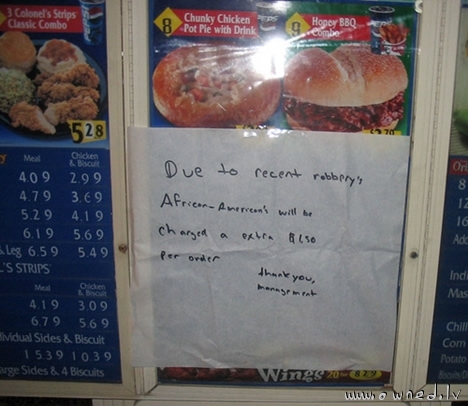 3 Colonel's Strips
Classic Combo
528
8
Chunky Chicken
Pot Pie with Drink
PEPSI
9
Honey BBQ
Combo
Due to recent robbery's
African-American's will be
charged a extra $1.50
per order
thank you,
management
Meal
Chicken
& Biscuit
4.09 2.99
4.79 3.69
5.29 4.19
6.19 5.69
& Leg 6.59 5.49
L'S STRIPS
Meal
Chicken
& Biscuit
4.19 3.09
6.79 5.69
dividual Sides & Biscuit
15.39 10.39
arge Sides & 4 Biscuits
Wings
www.owned.lv